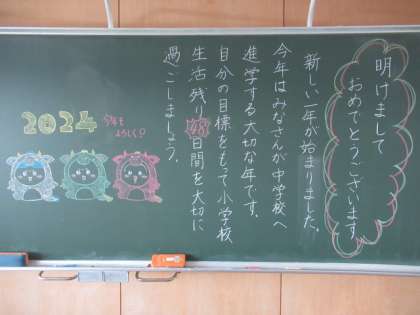 明けまして
おめでとうございます
新しい一年が始まりました。
今年はみなさんが中学校へ
進学する大切な年です。
自分の目標をもって小学校
生活残り48日間を大切に
過ごしましょう。
2024
今年も
よろしく!